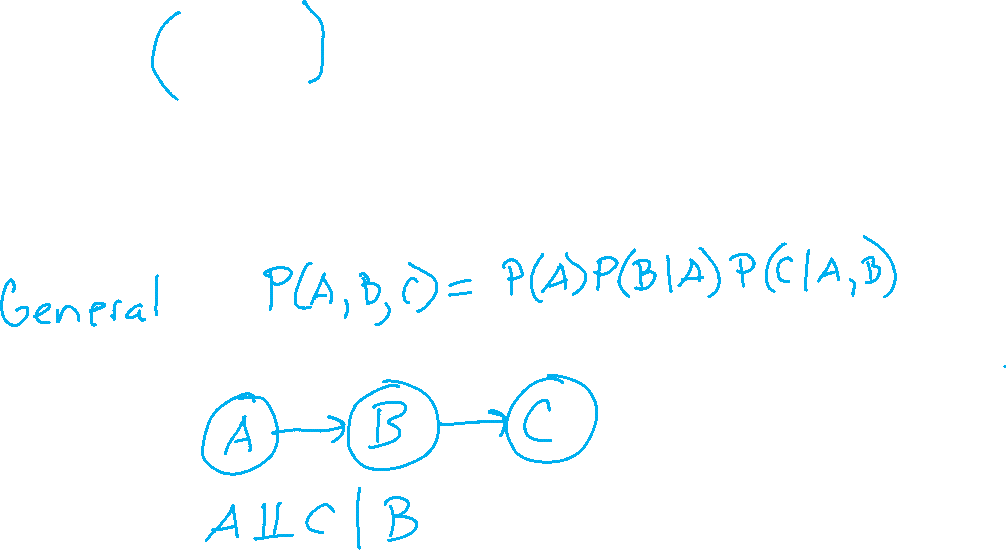 ( )
General P(A,B,C)= P(A)P(B|A)P(C|A,B)
A B C
A⫫C|B